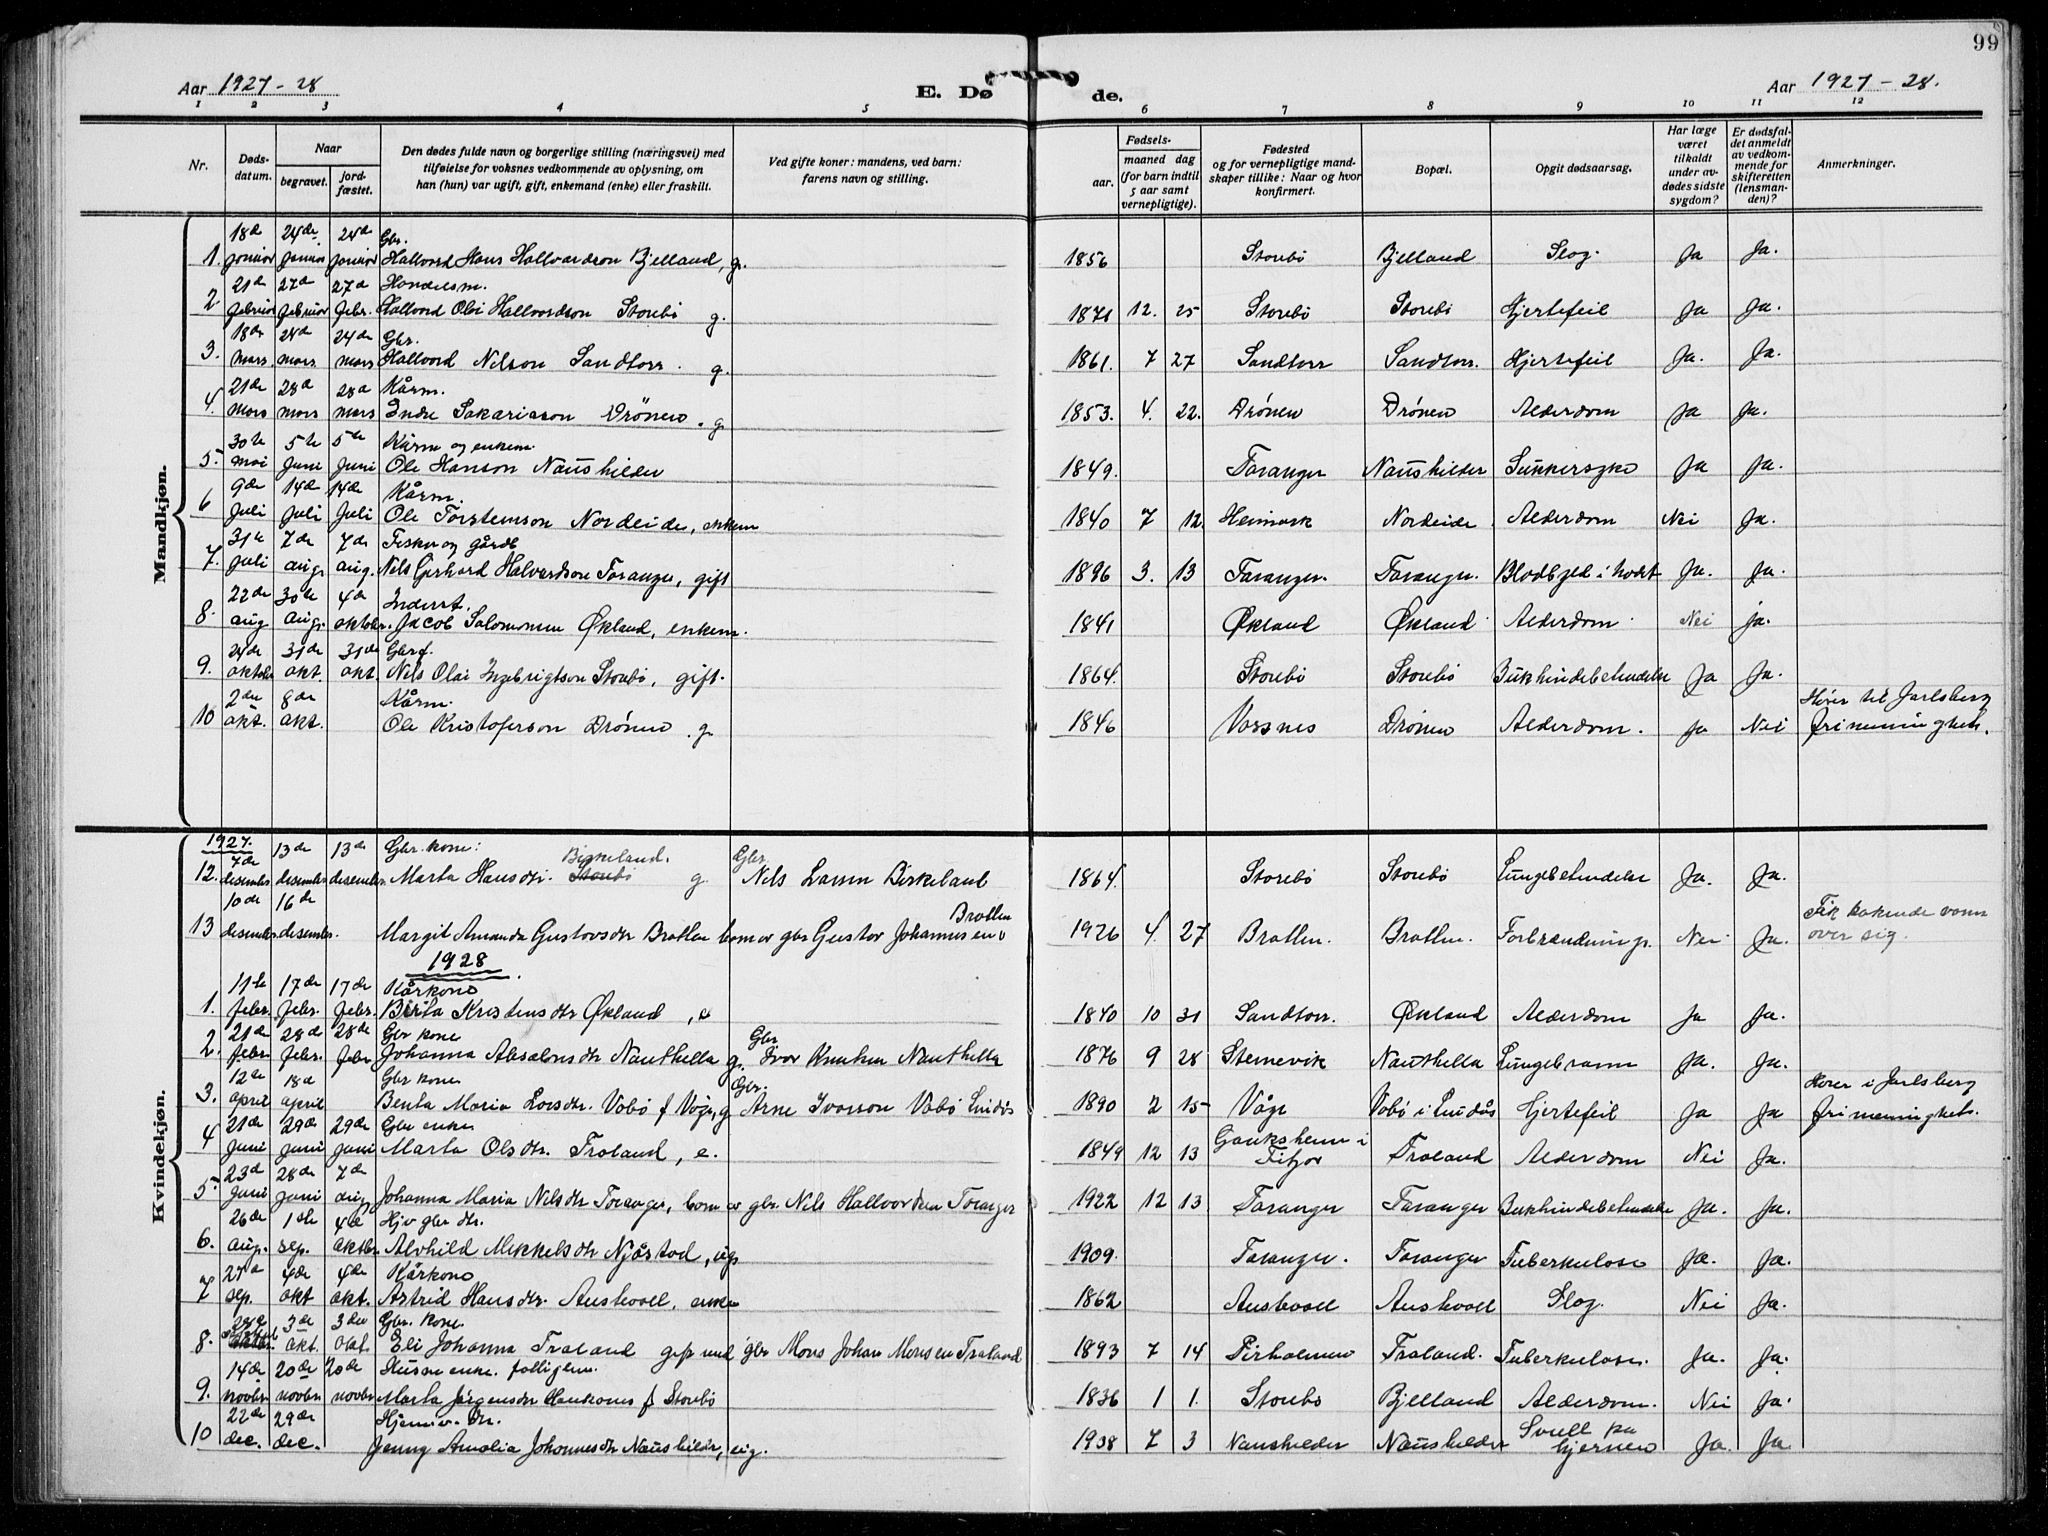 99
Aar 1927-28
E. Dø
de.
Aar 1927-28.
1 2 3 4 5 6 7 8 9 10 11 12
Nr.
Døds-
datum.
Naar
begravet.
jord-
fæstet.
Den dødes fulde navn og borgerlige stilling (næringsvei) med
tilføielse for voksnes vedkommende av oplysning, om
han (hun) var ugift, gift, enkemand (enke) eller fraskilt.
Ved gifte koner: mandens, ved barn:
farens navn og stilling.
Fødsels-
aar.
maaned dag
(for barn indtil
5 aar samt
vernepligtige).
Fødested
og for vernepligtige mand-
skaper tillike: Naar og hvor
konfirmert.
Bopæl.
Opgit dødsaarsag.
Har læge
været
tilkaldt
under av-
dødes sidste
sygdom?
Er dødsfal-
det anmeldt
av vedkom-
mende for
skifteretten
(lensman-
den)?
Anmerkninger.
Mandkjøn.
18de 24de 24de Gbr.
1. januar januar januar Hallvard Hans Hallvardson Bjelland, g. 1856 Storebø Bjelland Slag. Ja Ja.
21de 27de 27de Handelsm.
2 februar februar febr. Hallvard Olai Hallvardson Storebø g. 1871 12. 25 Storebø Storebø Hjertefeil Ja Ja.
18de 24de 24de Gbr.
3. mars mars mars Hallvord Nilson Sandtorv. g. 1861. 7 27 Sandtorv Sandtorv. Hjertefeil Ja. Ja.
21de 28de 28de Kårm.
4. mars mars mars Endre Sakariasson Drönen. g. 1853. 4. 22. Drónen Drónen Alderdom Ja Ja.
30te 5te 5te Kårm og enkem.
5. mai juni juni Ole Hanson Naushilder 1849. Taranger Naushilder Sukkersyke Ja Ja.
9de 14de 14de Kårm.
6 juli juli juli Ole Torsteinson Nordeide, enkem 1840 7 12 Heimark Nordeide Alderdom Nei Ja.
31te 7de 7de Fisker og gårdb
7. juli aug. aug. Nils Gerhard Halvardson Taranger, gift 1896 3. 13 Taranger. Taranger. Ja. Ja.
22de 30te 4de Inderst.
8. aug aug. oktober. Jacob Salomonsen Økland, enkem. 1841 Økland Økland Alderdom Nei ja.
24de 31de 31de Gbrf.
9. oktober okt. okt. Nils Olai Ingebrigtson Storebø, gift. 1864. Storebø Storebø Bukhindebetendelse Ja Ja.
2den 8de Kårm.
10 okt. okt. Ole Kristoferson Drónen. g. 1846 Vossnes Drónen Alderdom. Ja Nei
Hører til Jarlsberg
frimenninghet.
Kvindekjøn.
1927.
7de 13de 13de Gbr. kone: Birkeland. Gbr.
12. desember desember desember. Marta Hansdtr. Storebø g. Nils Larsen Birkeland 1864. Storebø Storebø Lungebetendelse Ja. Ja.
10de 16de
13 desember desember. Margit Amanda Gustavsdtr Bratten barn av gbr Gustav Johannesen Bratten 1926 4. 27 Bratten. Bratten. Forbrændning. Nei Ja.
Fik kokende vann
over sig.
1928
11te 17de 17de Kårkone
1. febr. febr. febr. Birita Kristensdtr Økland, e 1840 10 31 Sandtorv. Økland Alderdom Ja Ja.
21de 28de 28de Gbr kone Gbr
2. febr. febr. febr Johanna Absalonsdtr Nauthella g. Ivar Knutsen Nauthella 1876 9 28 Steinevik Nauthella Ja. Ja.
12te 18de Gbr kone Gbr.
3. april april Benta Maria Larsdtr. Vabø f Våge, g Arne Ivarson Vabø Lindås 1890 2 15 Våge Vabø i Lindås Hjertefeil Ja Ja
Hører i Jarlsberg
frimenninghet.
21de 29de 29de Gbr enke
4 juni juni juni Marta Olsdtr. Træland, e. 1849 12 13 Gauksheim i Fitjar Træland Alderdom Nei Ja.
23d 28de 7de
5. juni juni aug Johanna Maria Nilsdtr Taranger, barn av gbr. Nils Hallvardsen Taranger 1922 12 13 Taranger Taranger Bukhindebetendelse Ja. Ja.
26de 1ste 4de Hjv gbr dtr.
6. aug. sep. oktbr. Alvhild Mikkelsdtr Njåstad, ug. 1909. Taranger. Taranger Tuberkulose Ja. Ja.
27de 4de 4de Kårkone
7 sep. okt okt. Astrid Hansdtr. Austvoll, enke 1862 Austvoll Austvoll Slag. Nei Ja.
28de 3de 3die Gbr. kone.
8. okt. okt. Eli Johanna Træland gift med gbr Mons Johan Monsen Træland 1893 7 14 Pirholmen Træland. Tuberkulose. Ja. Ja.
14de 20de 20de Husm enke. fattiglem.
9. novbr novbr novbr Marta Jørgensdtr Haukanes f Storebø 1836 1 1. Storebø Bjelland Alderdom. Nei Ja.
22de 29de Hjemmev. dtr.
10 dec. dec. Jenny Amalia Johannesdtr Naushilder, ug. 1908 7 3 Naushilder Naushilder Svull på hjernen Ja. Ja.